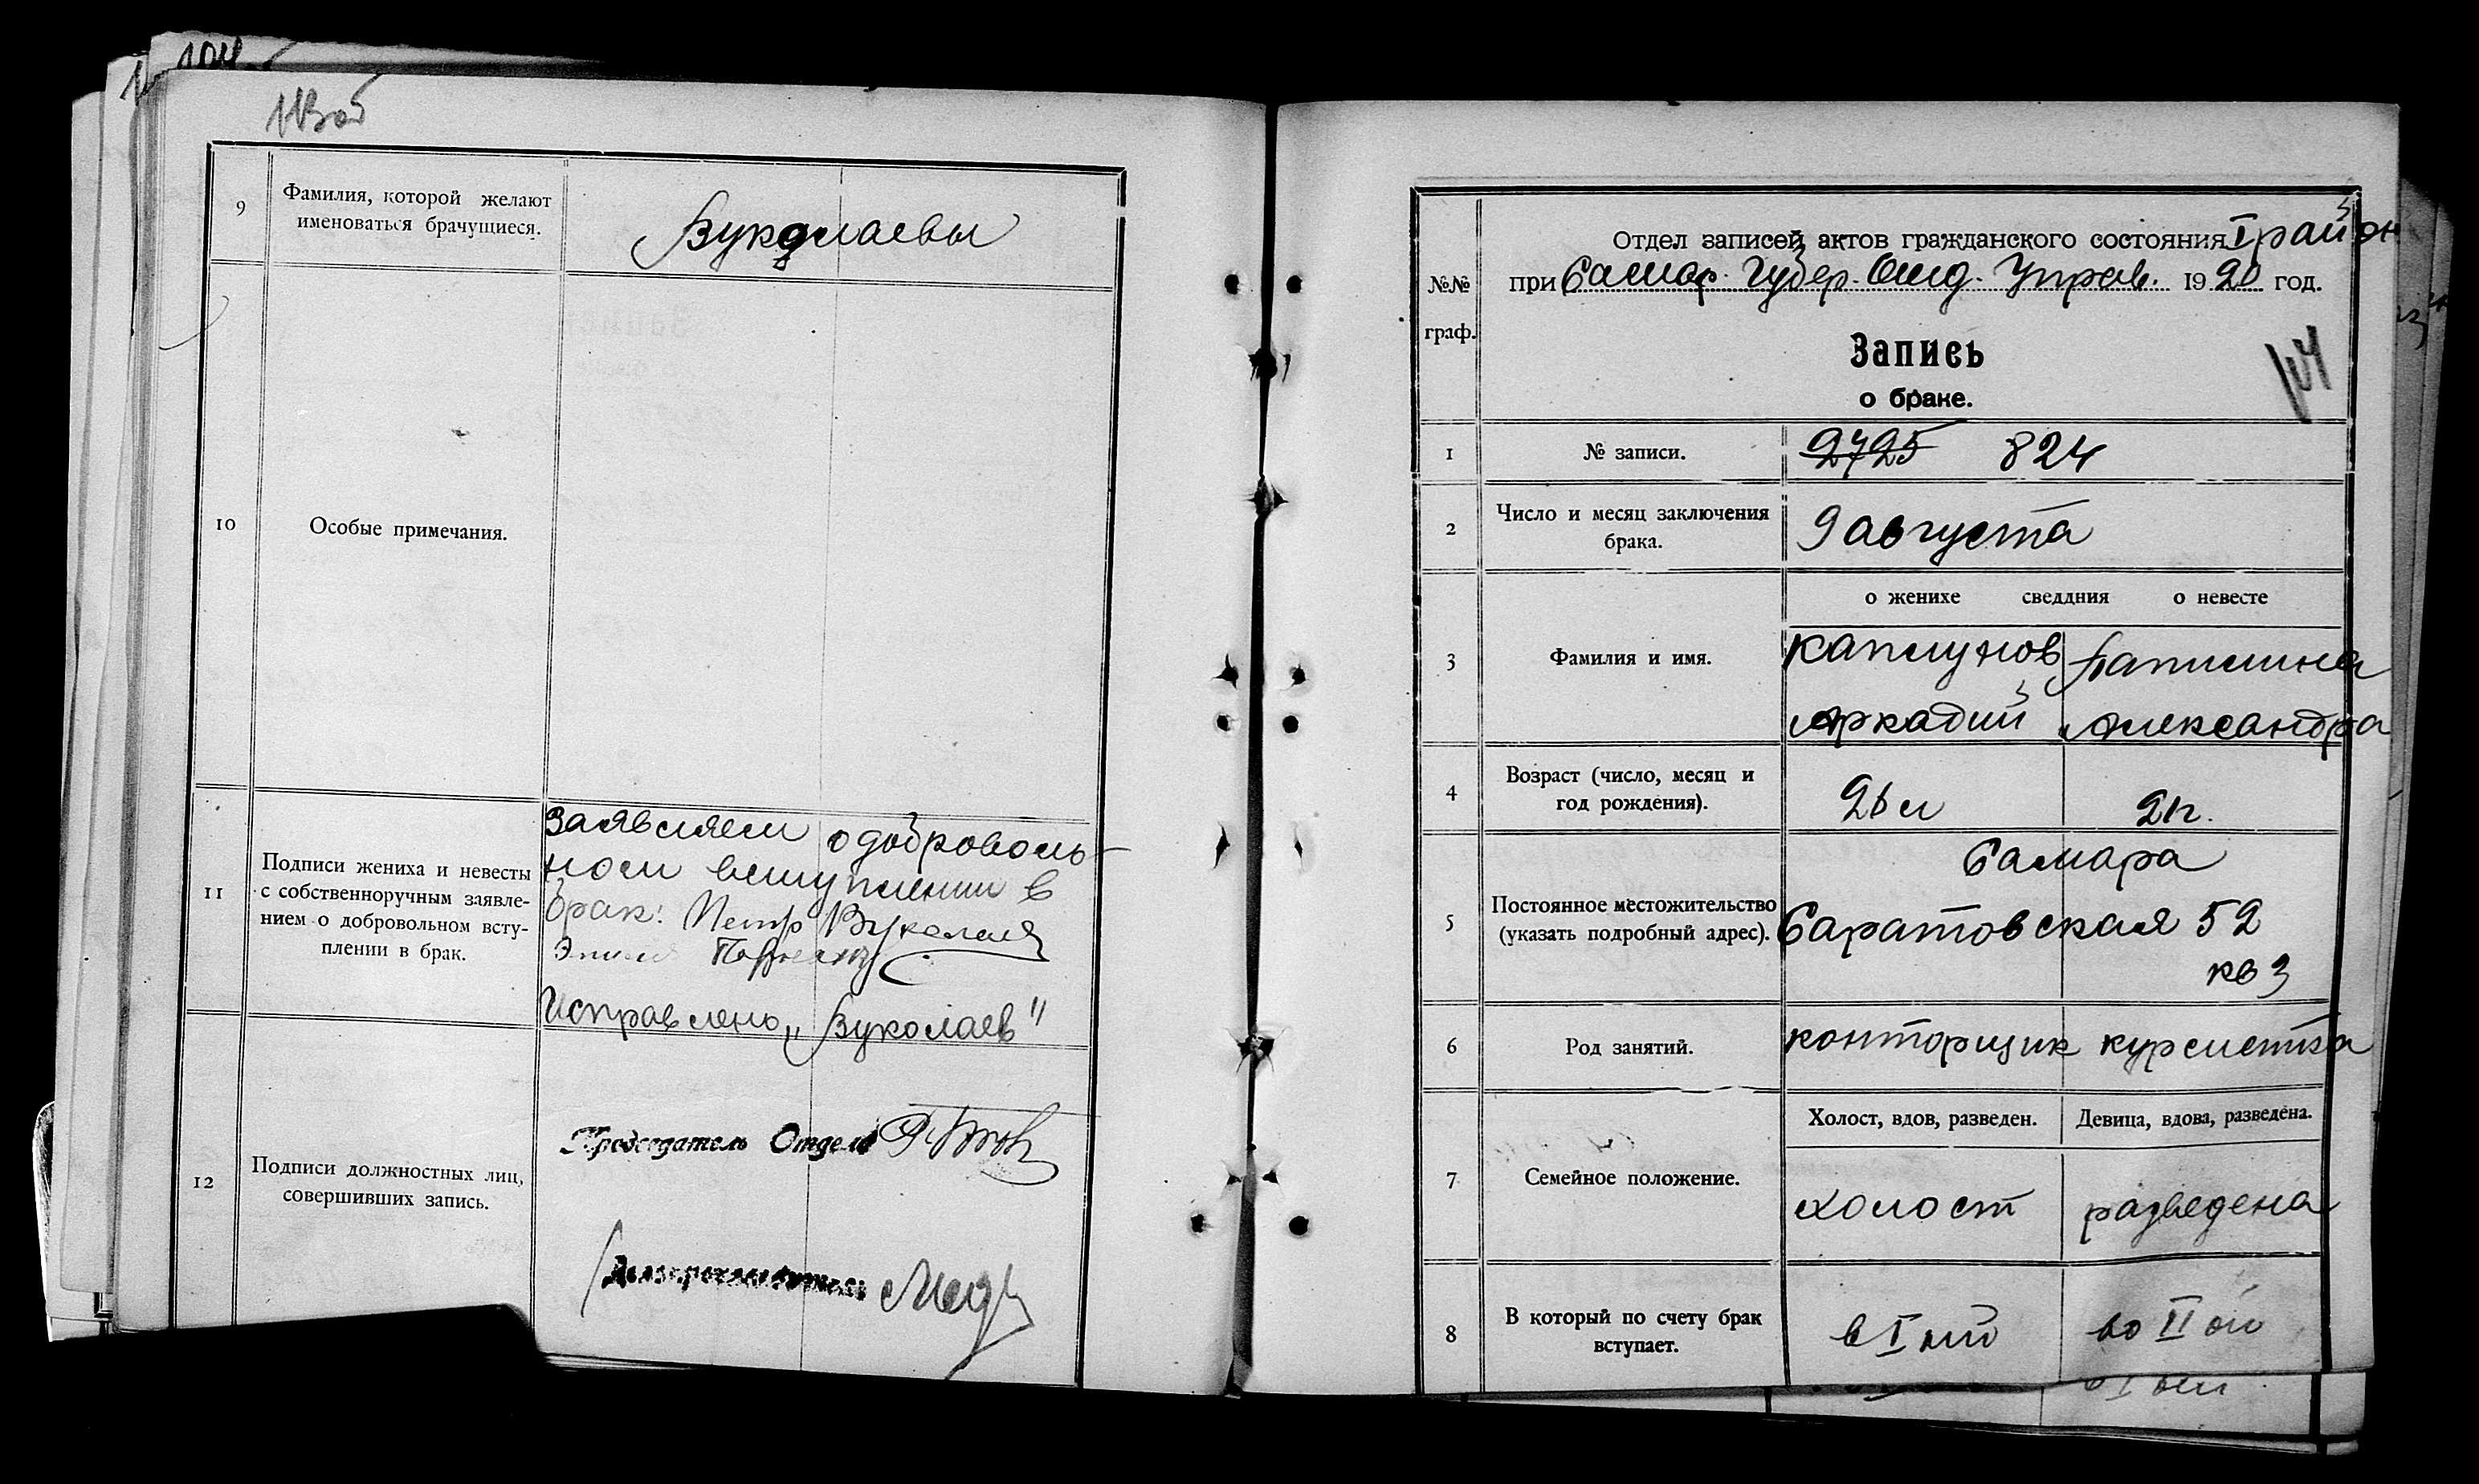 113об
9
Фамилия, которой желают
именоваться брачущиеся.
Вуколаевы
10
Особые примечания.
11
Подписи жениха и невесты
с собственноручным заявле-
нием о добровольном всту-
плении в брак.
Заявляем о доброволь-
ном вступлении в
брак: Петр Вуколаев
Исправлено „Вуколаев"
12
Подписи должностных лиц,
совершивших запись.
Председатель Отдела
Делопроизводитель
№№
граф.
Отдел записей актов гражданского состояния I район
при Самар. Губер. Отд. Управ. 1920 год.
Запись
о браке.
114
1
№ записи.
2725 824
2
Число и месяц заключения
брака.
9 августа
о женихе сведдния о невесте
3
Фамилия и имя.
Каплунов Папшина
Аркадий Александра
4
Возраст (число, месяц и
год рождения).
26 л 21 г.
5
Постоянное местожительство
(указать подробный адрес).
Самара
Саратовская 52
кв 3
6
Род занятий.
конторщик курсистка
7
Семейное положение.
Холост, вдов, разведен. Девица, вдова, разведена.
холост разведена
8
В который по счету брак
вступает.
в I ый во II ой